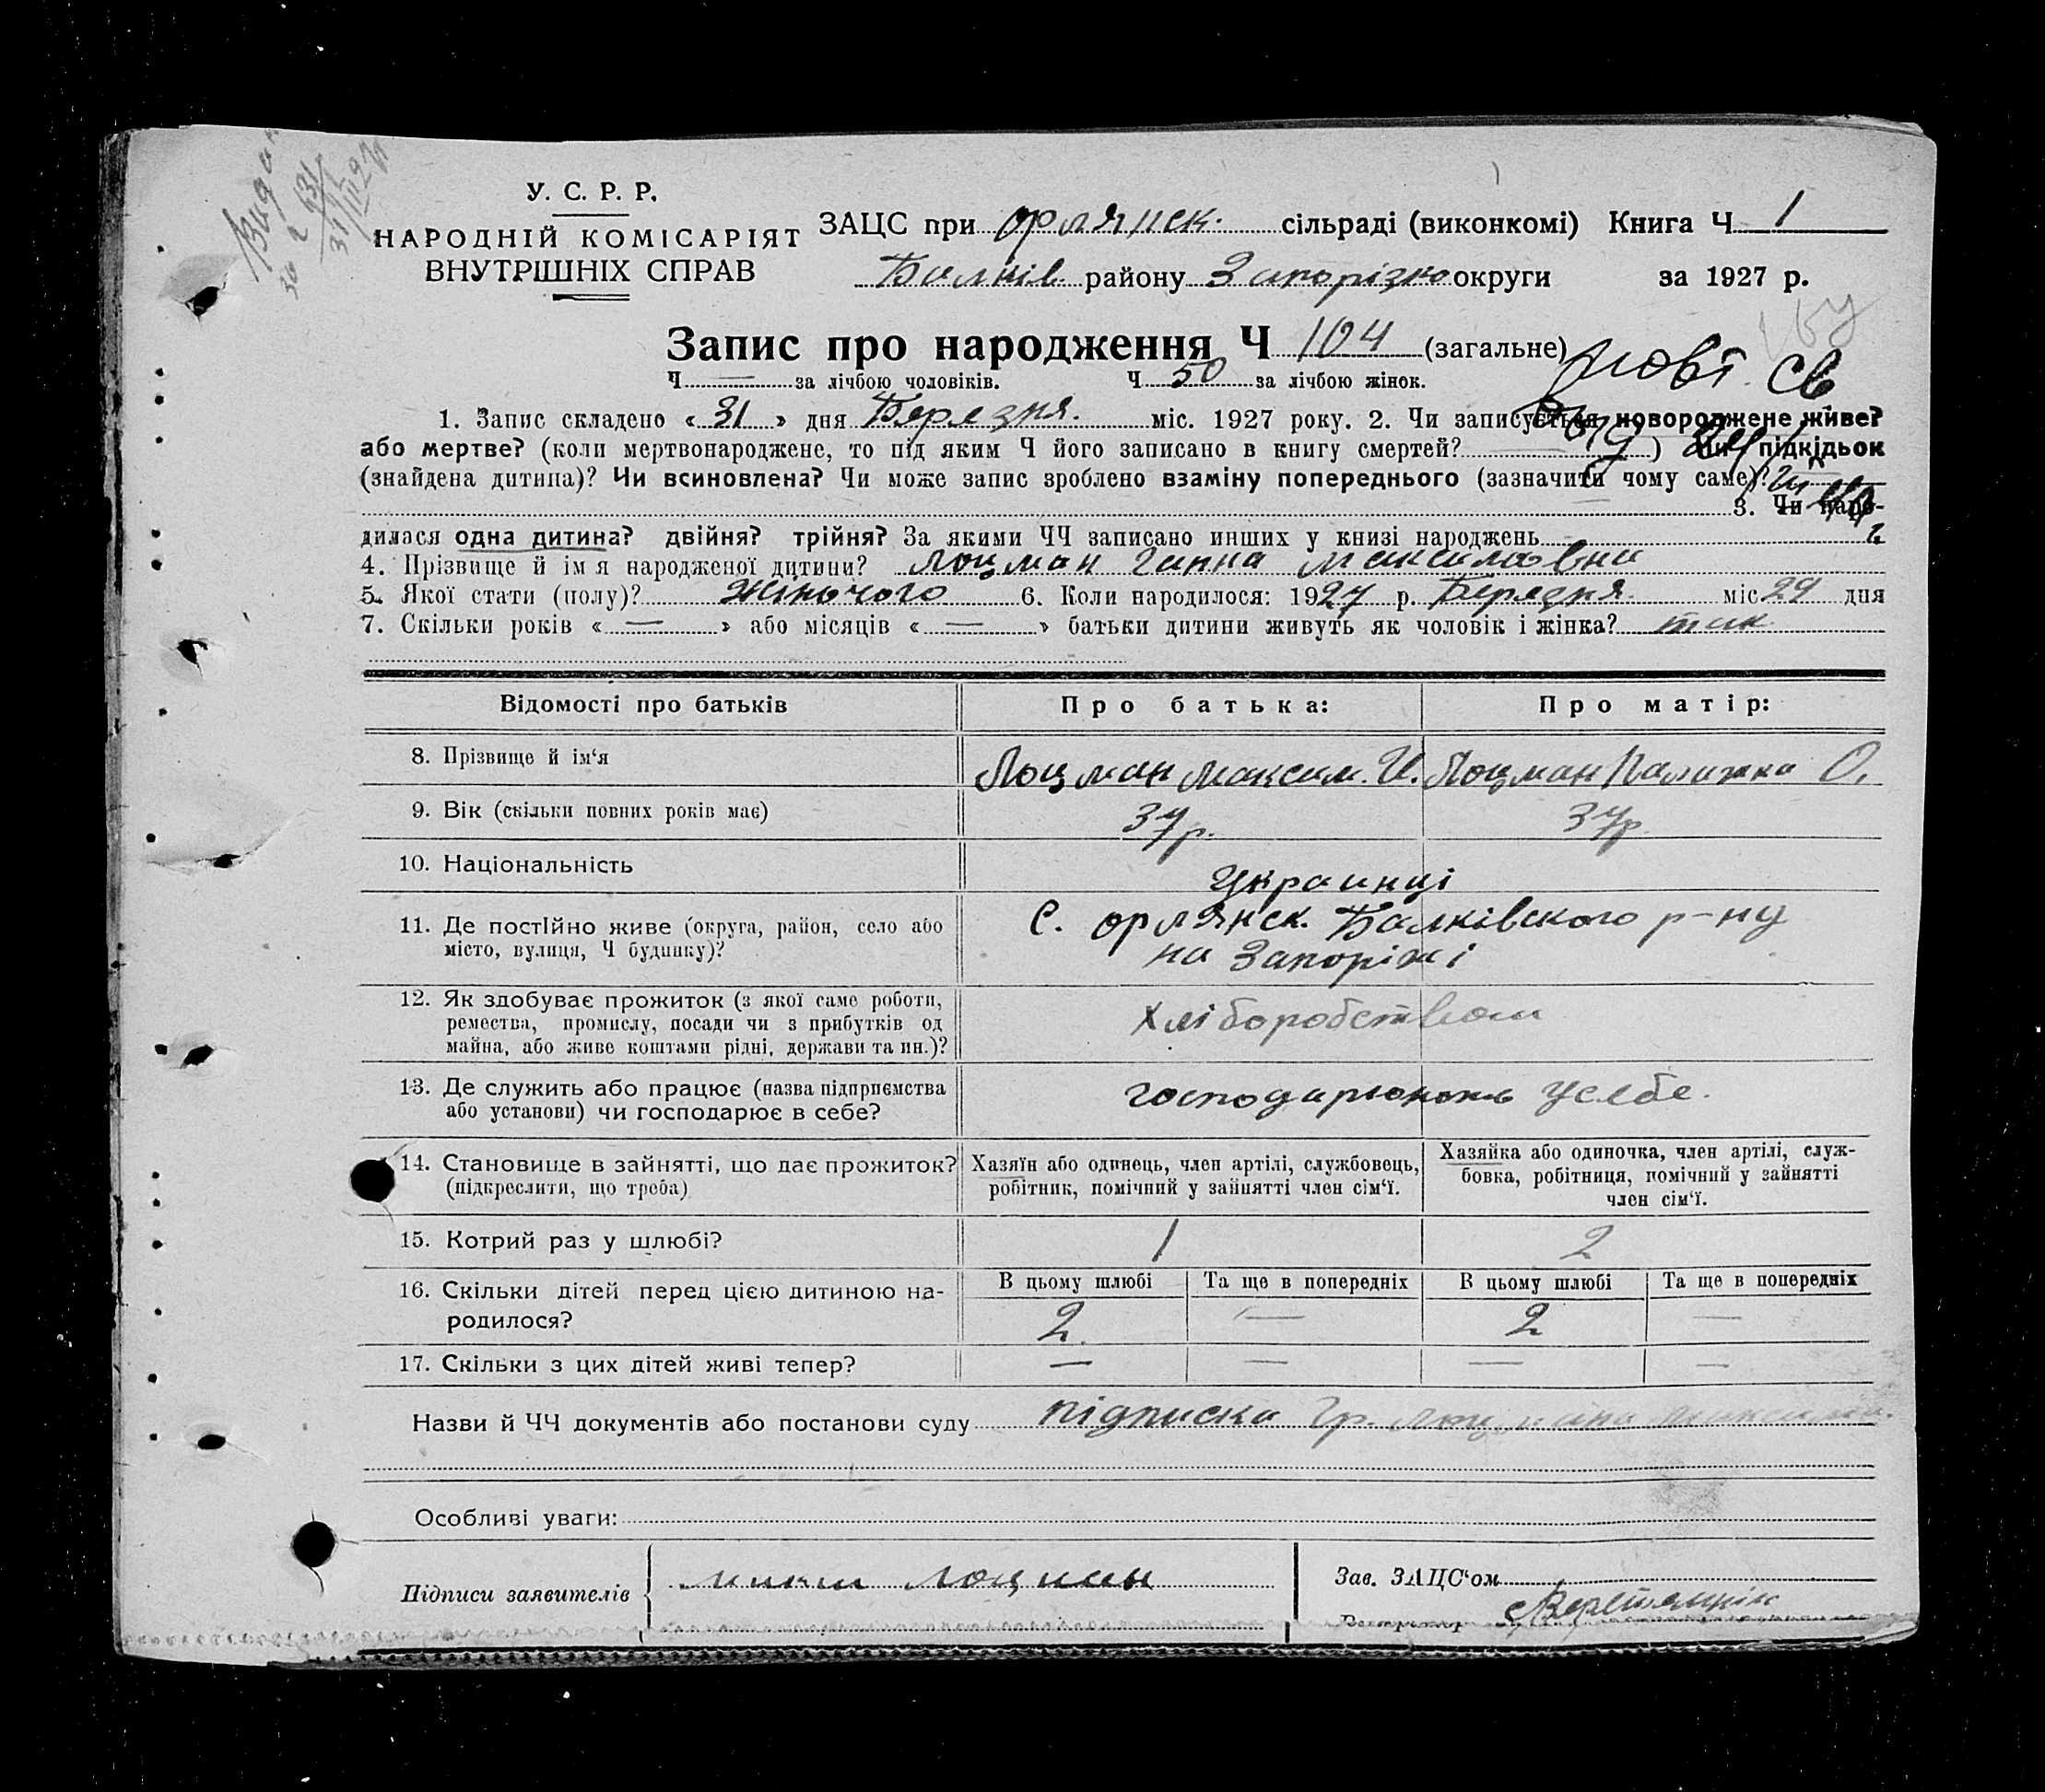 У. С. Р. Р.
НАРОДНІЙ КОМІСАРІЯТ
ВНУТРІШНІХ СПРАВ
ЗАЦС при орлянск. сільраді (виконкомі) Книга Ч 1
Балків району Запорізко округи за 1927 р.
Запис про народження Ч 104 (загальне)
Ч — за лічбою чоловіків. Ч 50 за лічбою жінок.
Повт. св
1. Запис складено « 31 » дня Березня. міс. 1927 року. 2. Чи записується новороджене живе?
або мертве? (коли мертвонароджене, то під яким Ч його записано в книгу смертей? — ) Чи підкідьок
(знайдена дитина)? Чи всиновлена? Чи може запис зроблено взаміну попереднього (зазначити чому саме)?
3. Чи наро-
дилася одна дитина? двійня? трійня? За якими ЧЧ записано инших у книзі народжень
4. Прізвище й ім я народженої дитини? Лоцман Ганна Максимовна
5. Якої стати (полу)? Жіночого 6. Коли народилося: 1927 р. Березня. міс. 29 дня
7. Скільки років « — » або місяців « — » батьки дитини живуть як чоловік і жінка? так
Відомості про батьків Про батька: Про матір:
8. Прізвище й ім‘я Лоцман Максим. И. Лоцман Палажка О.
9. Вік (скільки повних років має) 37 р. 37 р
10. Національність Украинці
11. Де постійно живе (округа, район, село або С. орлянск. Балківского р-ну
місто, вулиця, Ч будинку)? на Запоріжі
12. Як здобуває прожиток (з якої саме роботи, Хліборобством
ремества, промислу, посади чи з прибутків од
майна, або живе коштами рідні, держави та ин.)?
13. Де служить або працює (назва підприємства
або установи) чи господарює в себе? господарюють уселбе.
14. Становище в зайнятті, що дає прожиток? Хазяїн або одинець, член артілі, службовець, Хазяйка або одиночка, член артілі, служ-
(підкреслити, що треба) робітник, помічний у зайнятті член сім‘ї. бовка, робітниця, помічний у зайнятті
член сім‘ї.
15. Котрий раз у шлюбі? 1 2
16. Скільки дітей перед цією дитиною на- В цьому шлюбі Та ще в попередніх В цьому шлюбі Та ще в попередніх
родилося? 2. — 2 —
17. Скільки з цих дітей живі тепер? — — — —
Назви й ЧЧ документів або постанови суду підписка Гр. Лоцмана Максима.
Особливі уваги:
Підписи заявителів Лоцман Зав. ЗАЦС‘ом